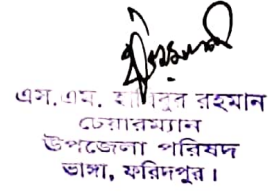 এস.এম. হাবিবুর রহমান
চেয়ারম্যান
উপজেলা পরিষদ
ভাঙ্গা, ফরিদপুর।